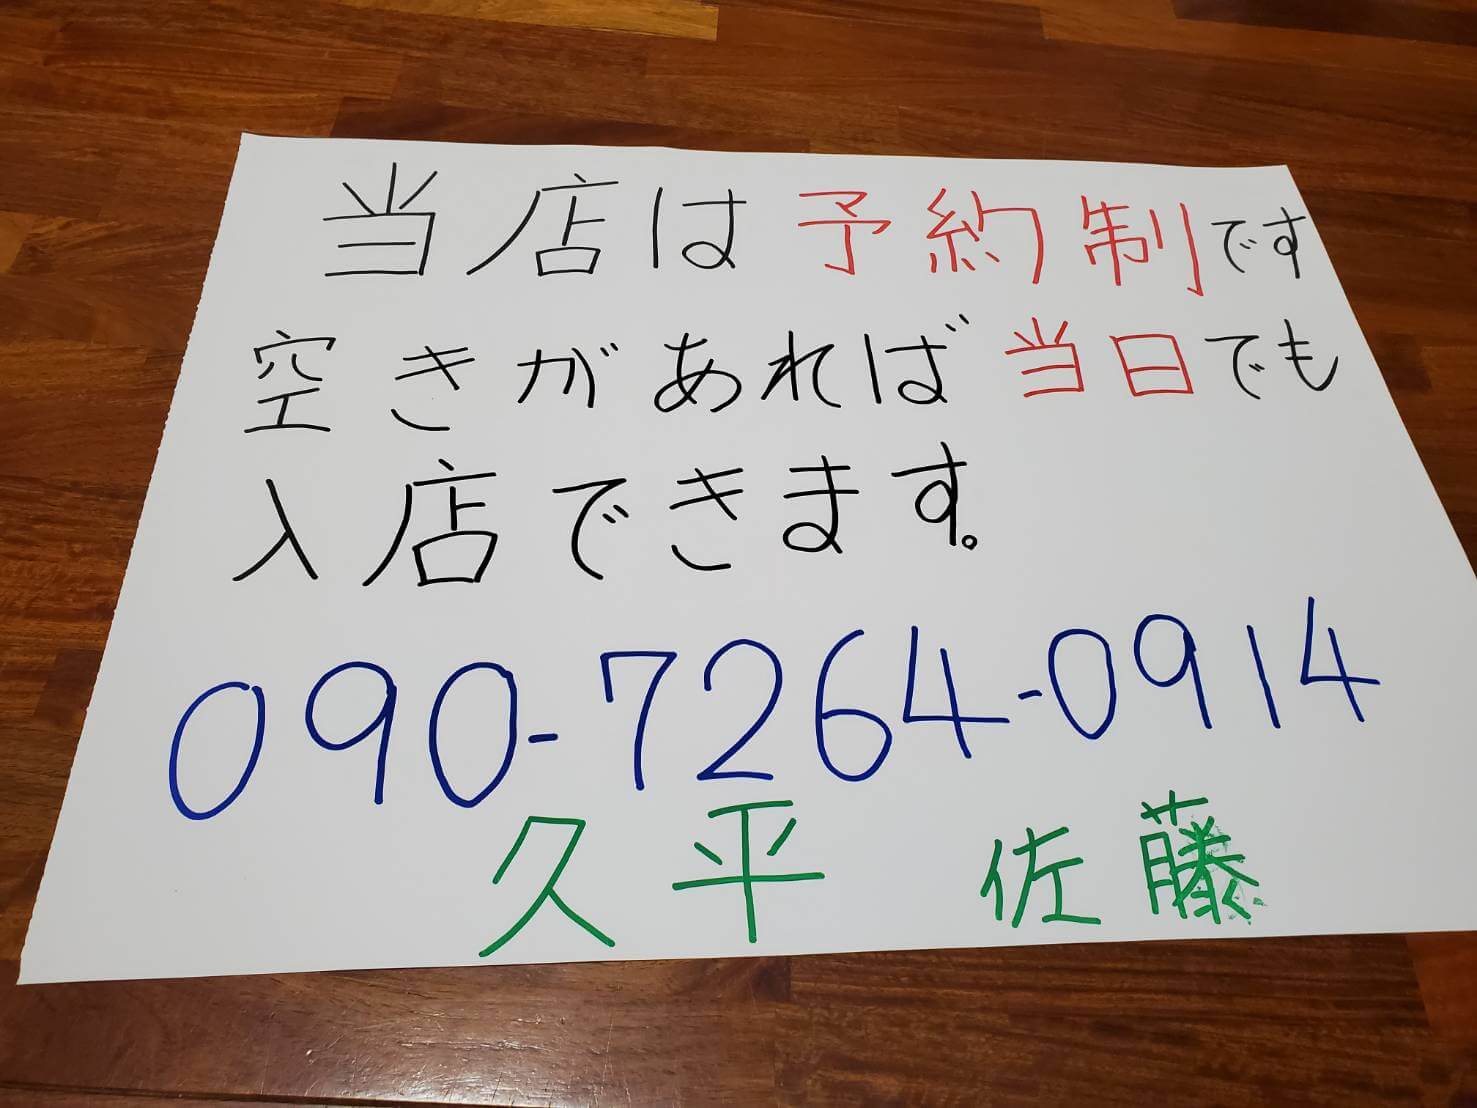 当店は予約制です
空きがあれば当日でも
入店できます。
090-7264-0914
久平 佐藤